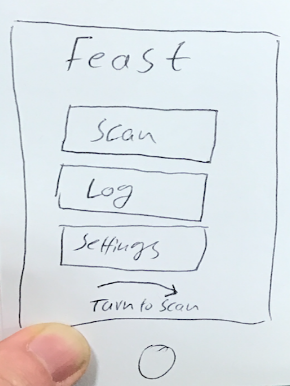 Feast
Scan
Log
Settings
Turn to Scan